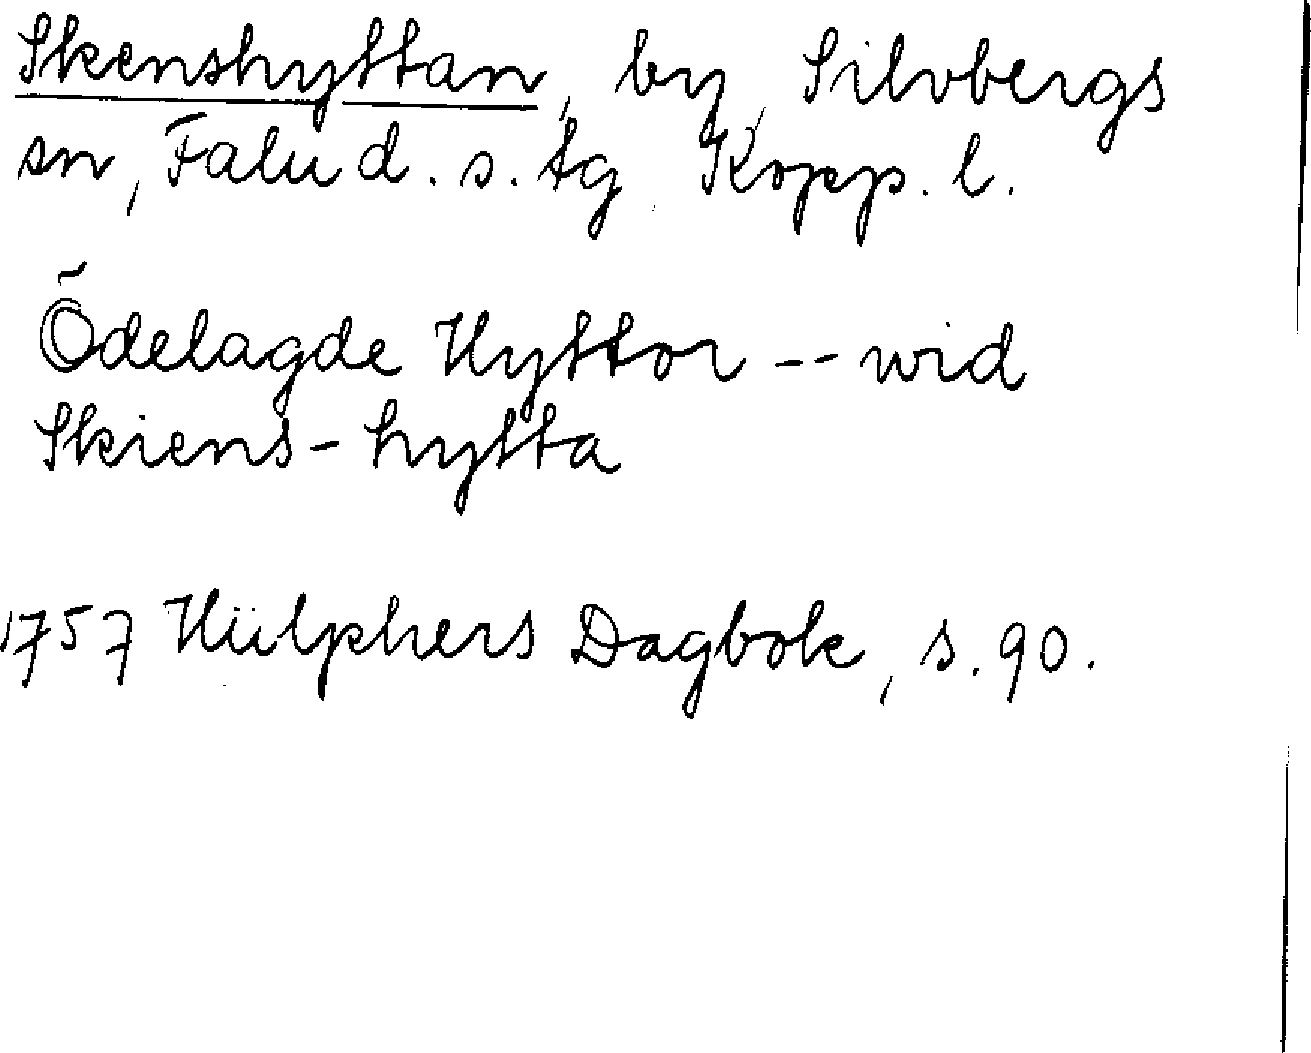 Skenshyttan, by, Silvbergs
sn, Falu d. s. tg Kopp. l.
Ödelagde Hyttor -- wid
Skiens-hytta
1757 Hülphers Dagbok, s. 90.